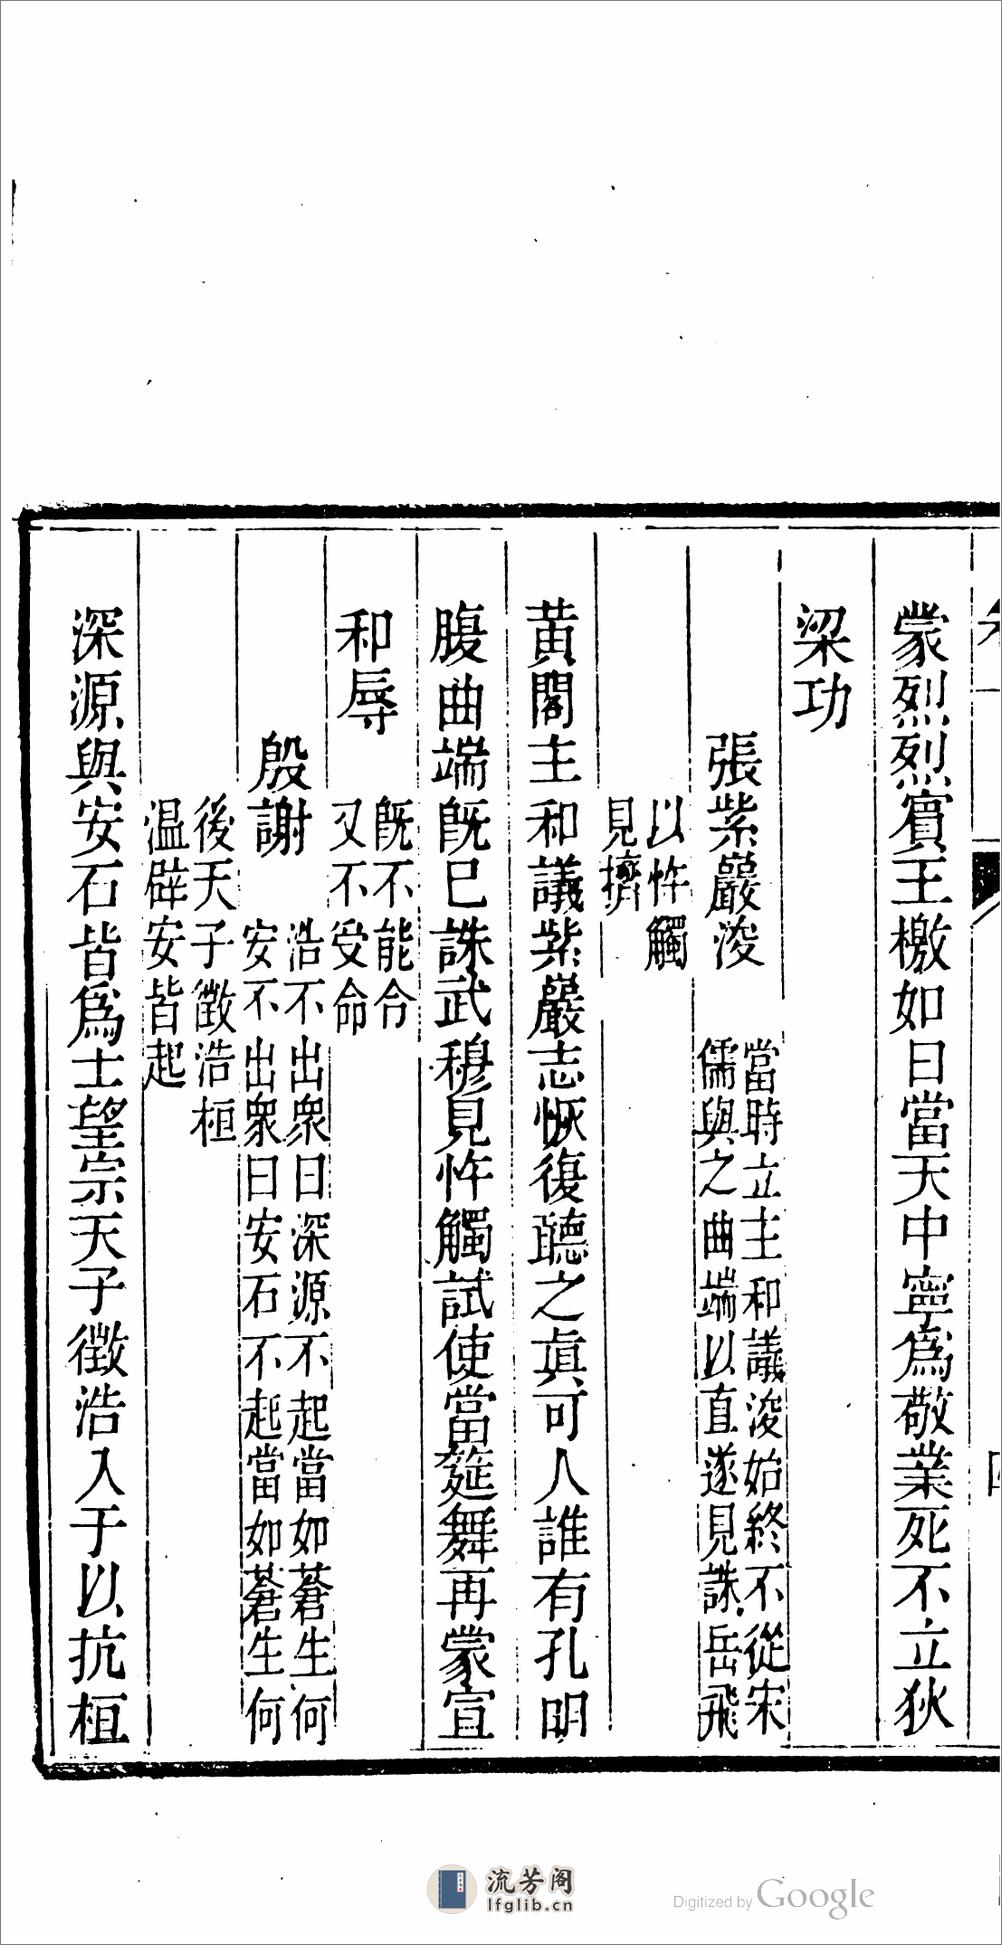 蒙烈烈賓王檄如日當天中寧爲敬業死不立狄
梁功
張紫巖浚
當時立主和議浚始終不從宋
儒與之曲端以直遂見誅岳飛
以忤觸
見擠
黄閣主和議紫巖志恢復聽之眞可人誰有孔明
腹曲端旣巳誅武穆見忤觸試使當筵舞再蒙宣
和辱
旣不能令
又不受命
殷謝
浩不出衆曰深源不起當如蒼生何
安不出衆曰安石不起當如蒼生何
後天子徵浩桓
温辟安皆起
深源與安石皆爲士望宗天子徵浩入于以抗桓
流芳阁
lfglib.cn
Digitized by Google